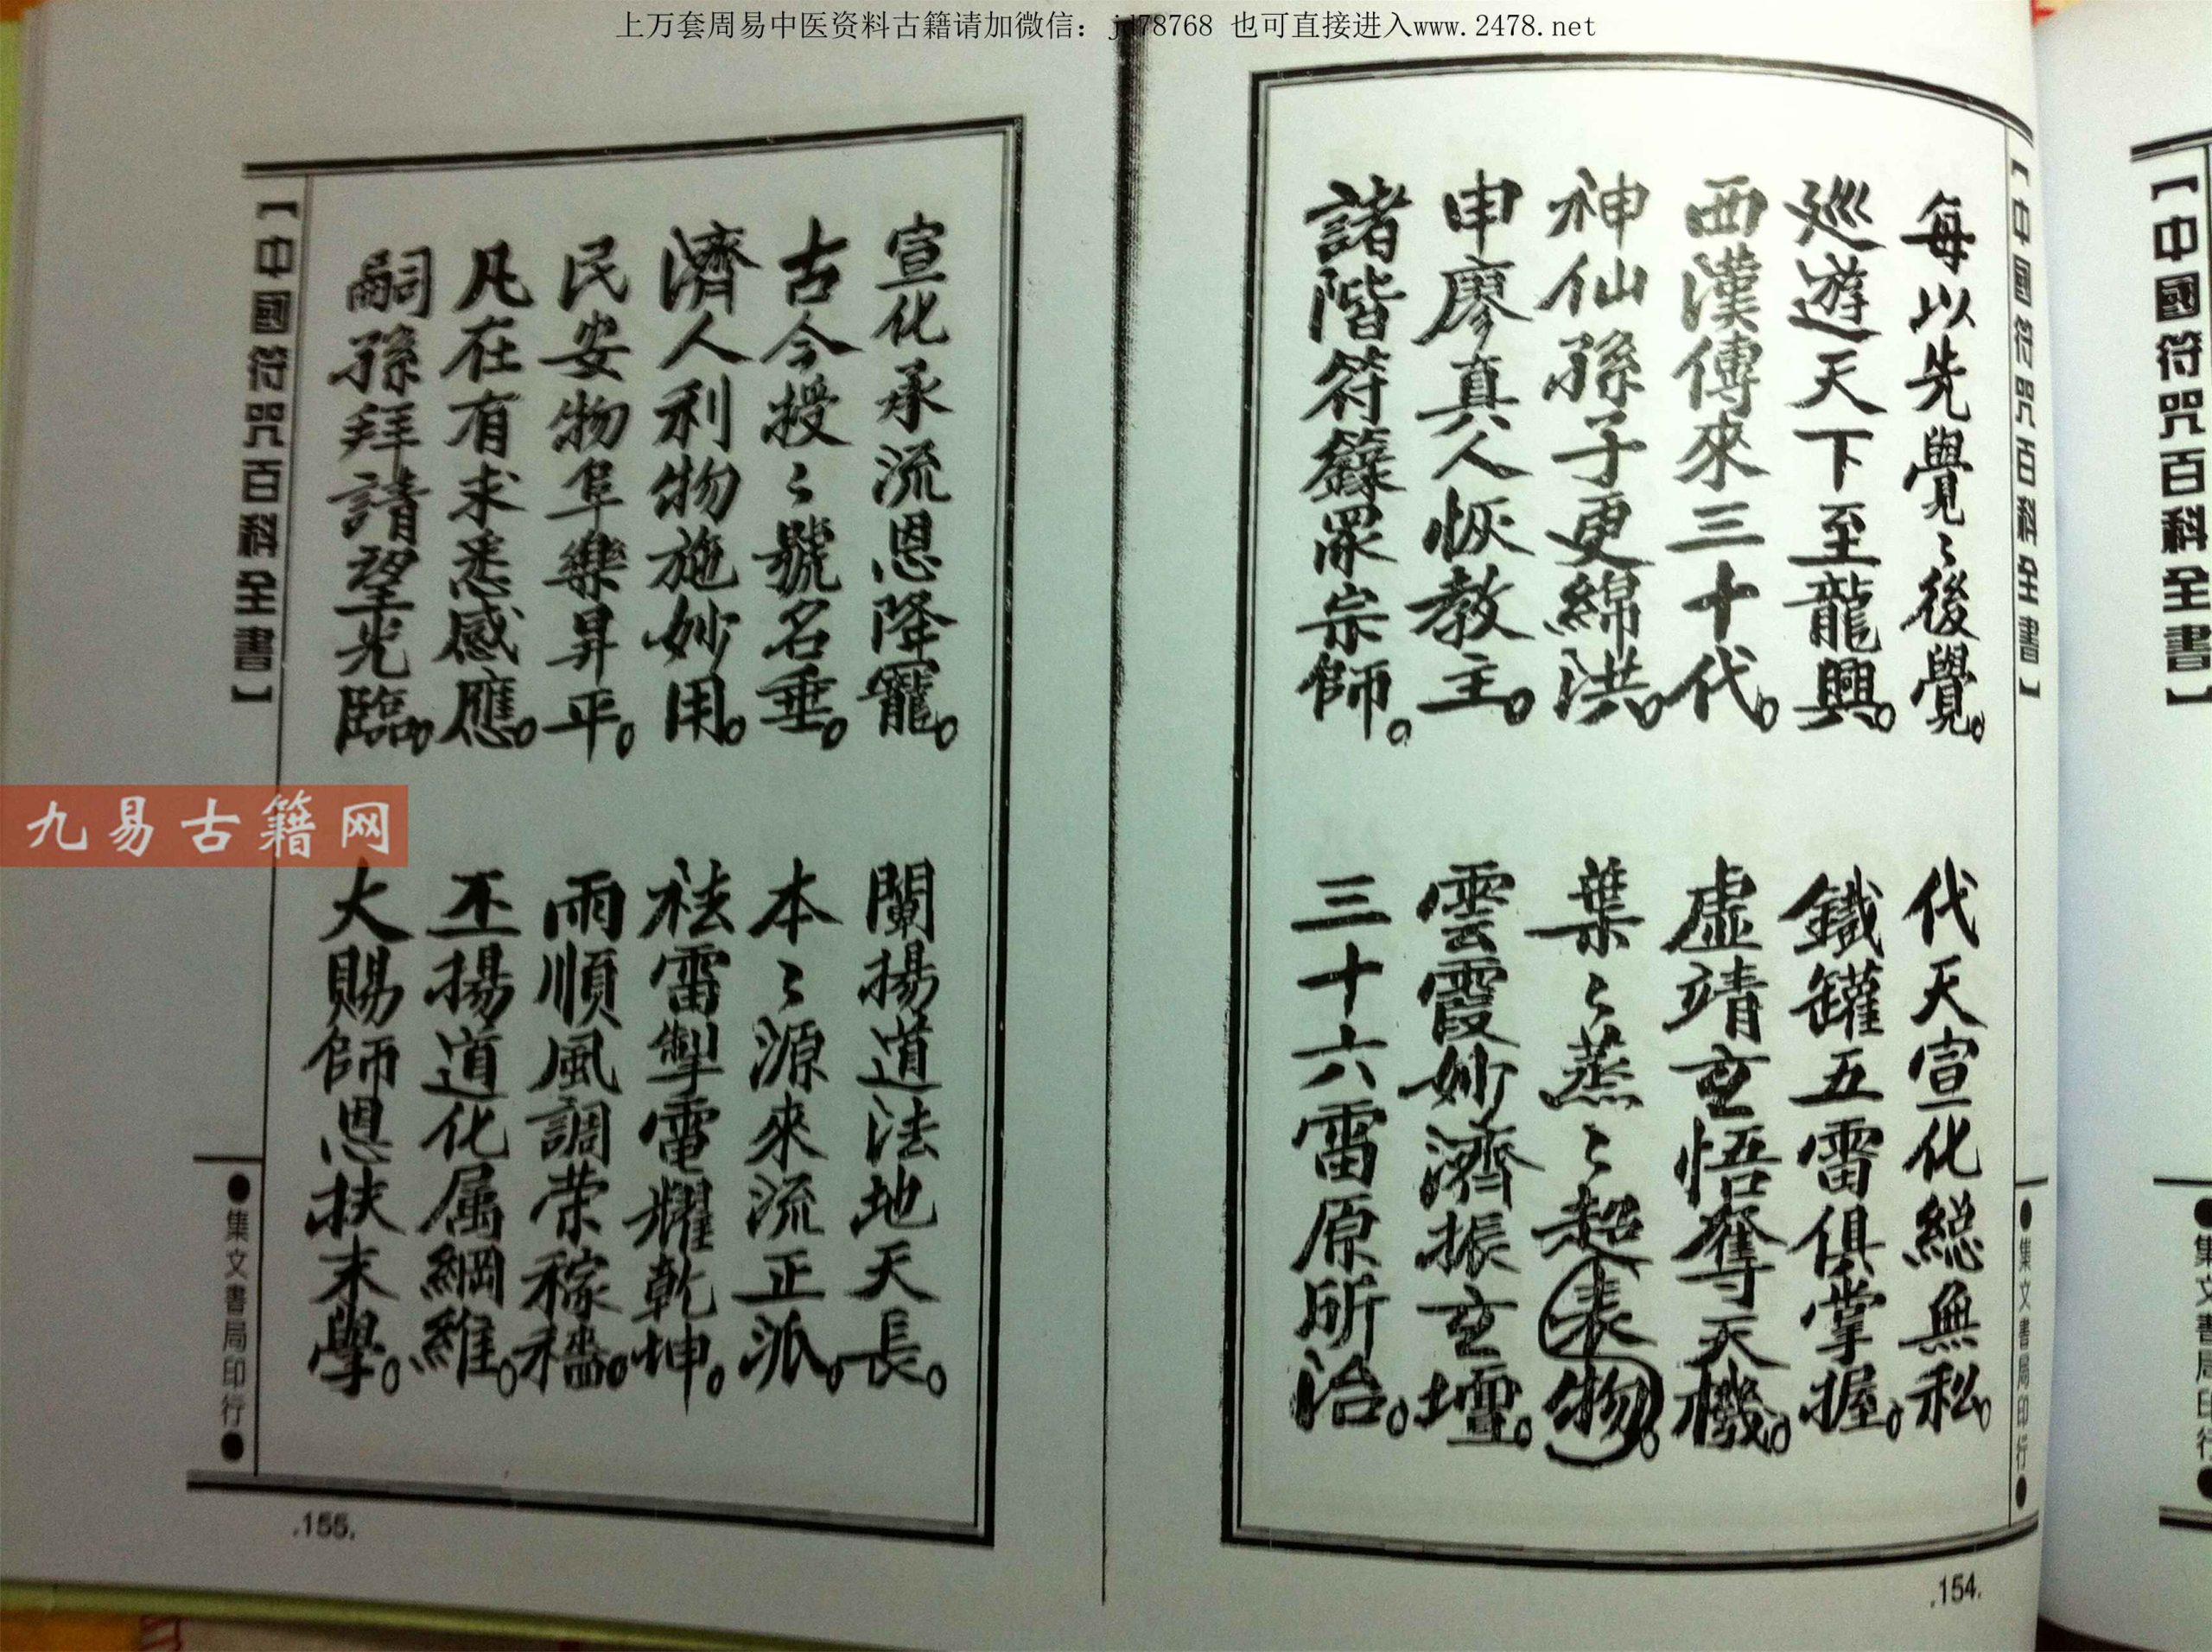 上万套周易中医资料古籍请加微信：jd78768 也可直接进入www.2478.net
【中國符咒百科全書】
每以先覺〻後覺。
代天宣化総無私。
巡遊天下至龍興。
鐵罐五雷俱掌握。
西漢傳來三十代。
虛靖玄悟奪天機。
神仙孫子更綿洪。
葉〻蒸〻超表物。
申廖真人恢教主。
雲霞妙濟振玄壇。
諸階符籙眾宗師。
三十六雷原所治。
●集文書局印行●
.154.
宣化承流恩降寵。
闡揚道法地天長。
古今授〻號名垂。
本〻源來流正派。
濟人利物施妙用。
袪雷掣電耀乾坤。
民安物阜樂昇平。
雨順風調荣稼穡。
凡在有求悉感應。
丕揚道化属綱維。
嗣孫拜請望光臨。
大賜師恩扶末學。
【中國符咒百科全書】
●集文書局印行●
.155.
九易古籍网
【中國符咒百科全書】
●集文書局印行●